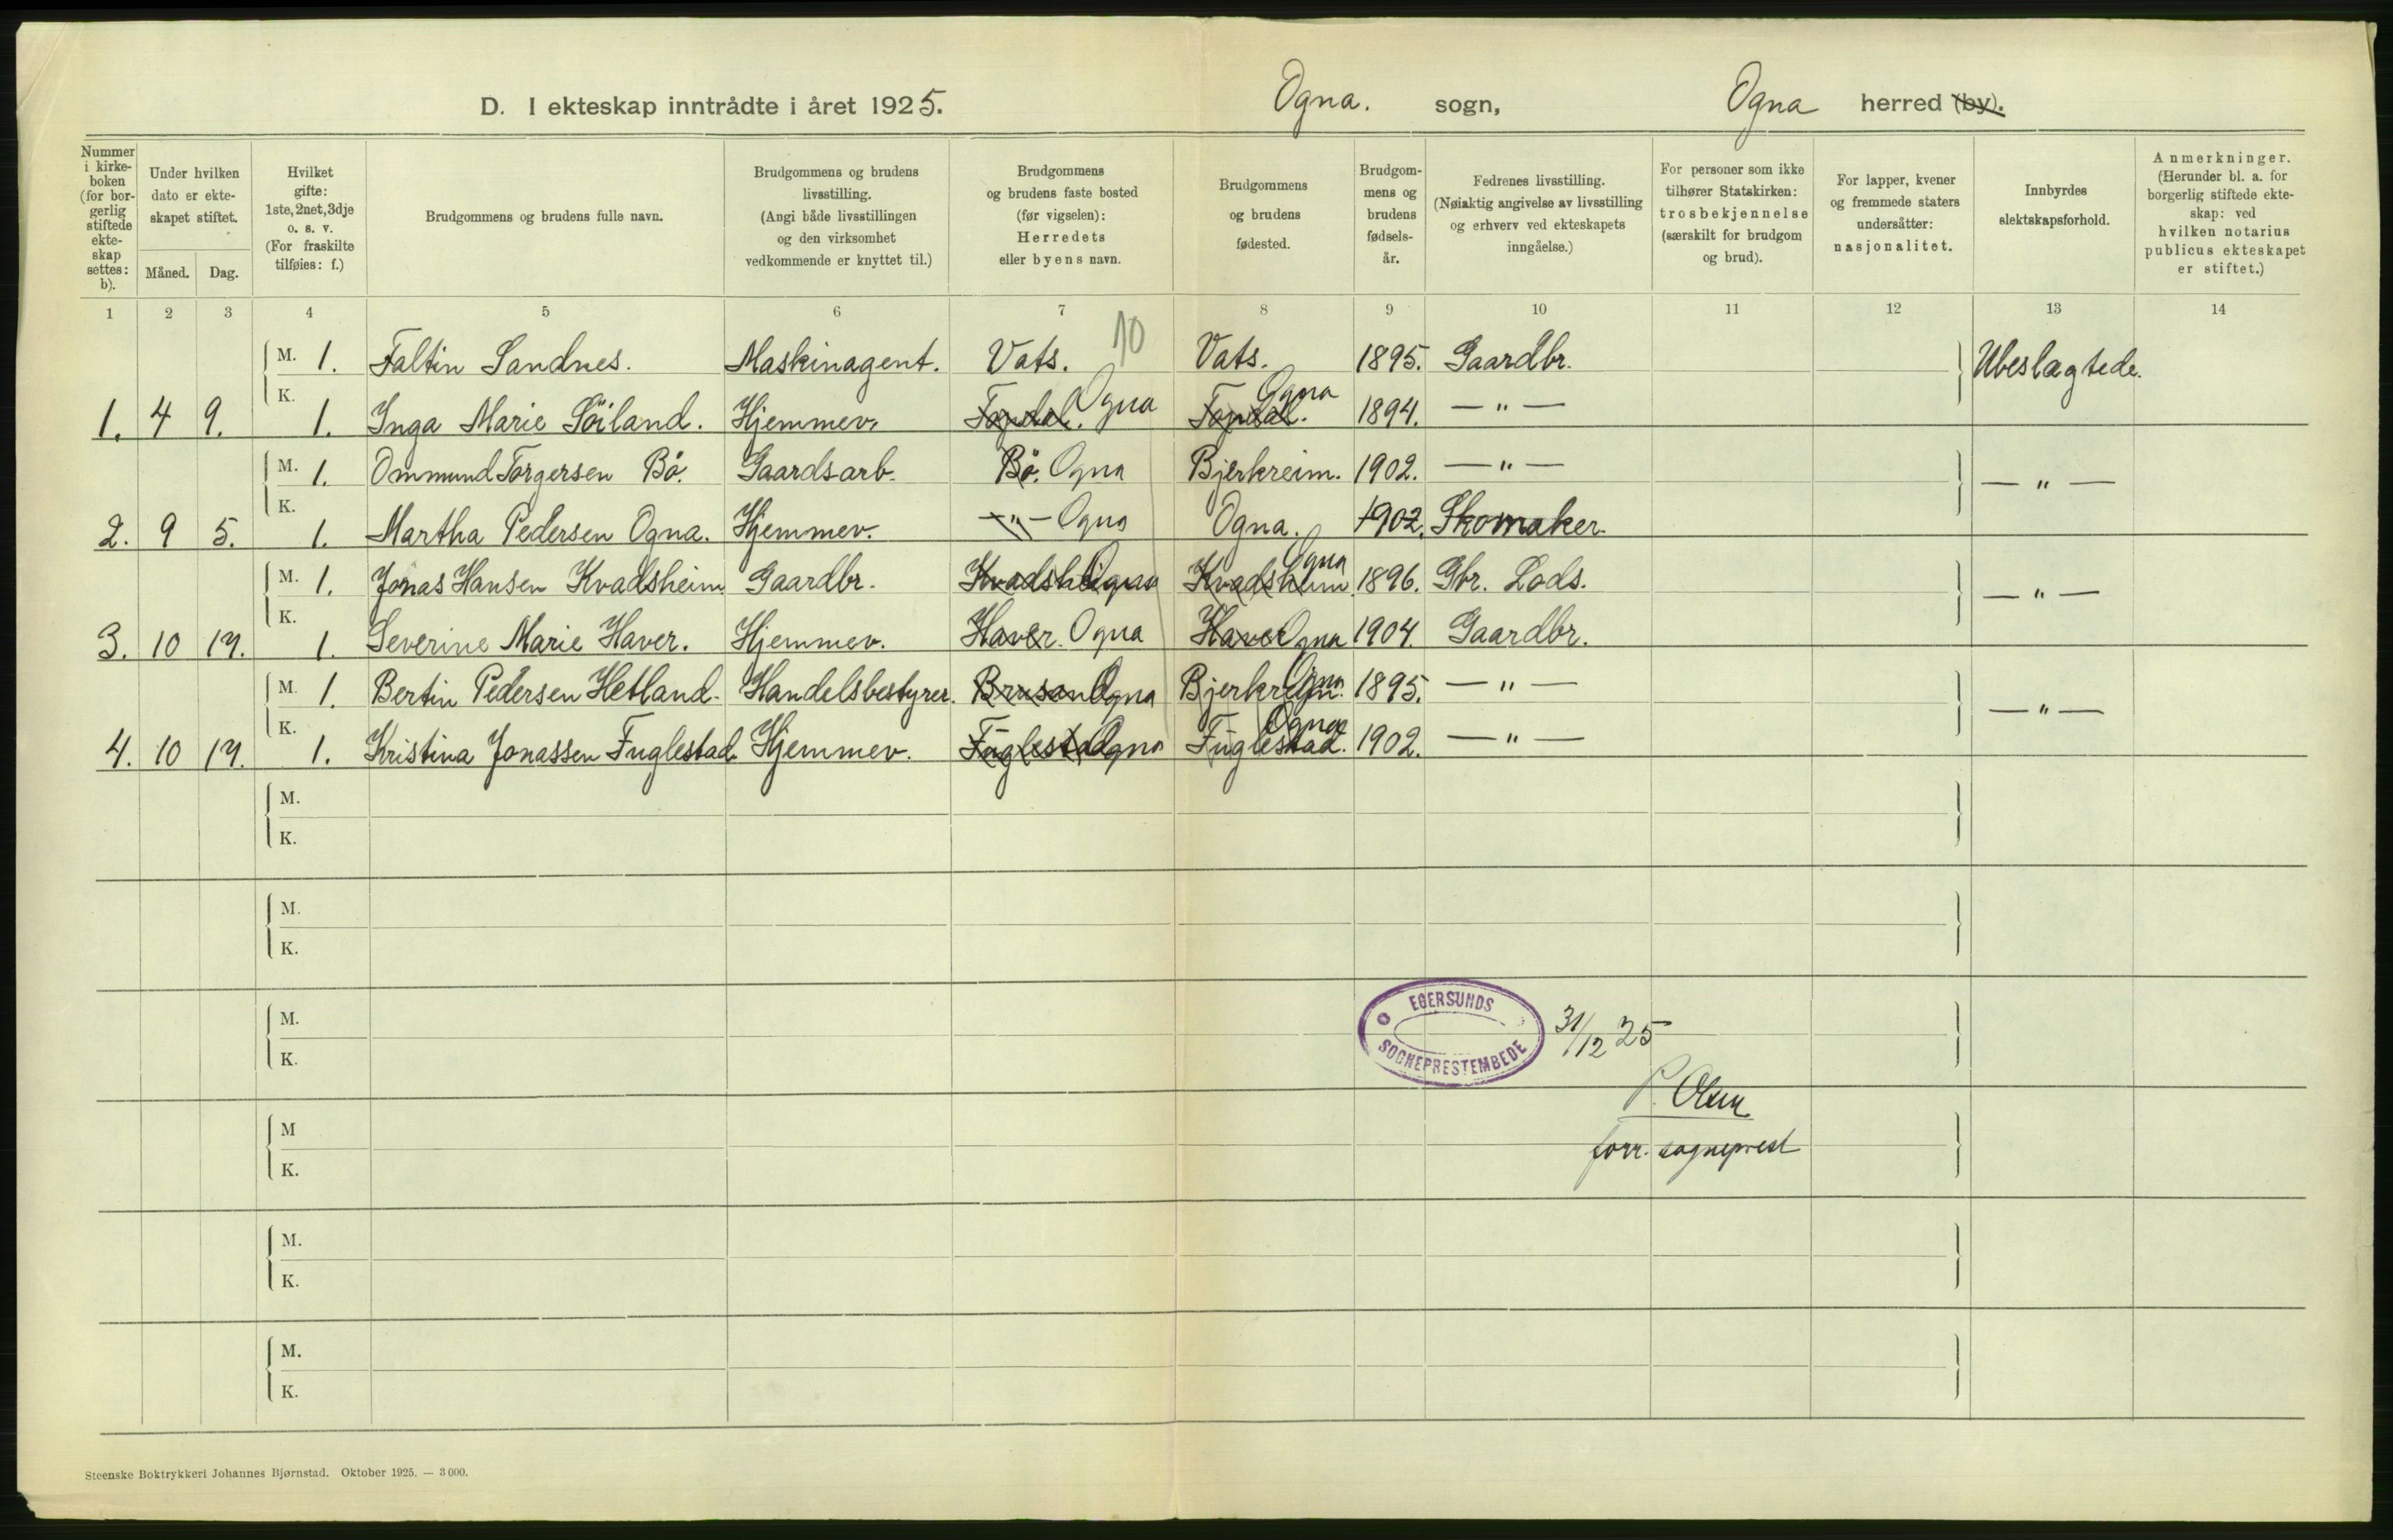 D. I ekteskap inntrådte i året 1925. Ogna. sogn, Ogna herred (by).
Nummer i kirkeboken (for borgerlig stiftede ekteskap settes: b).
Under hvilken dato er ekteskapet stiftet.
Måned. Dag.
Hvilket gifte: 1ste, 2net, 3dje o. s. v. (For fraskilte tilføies: f.)
Brudgommens og brudens fulle navn.
Brudgommens og brudens livsstilling. (Angi både livsstillingen og den virksomhet vedkommende er knyttet til.)
Brudgommens og brudens faste bosted (før vigselen): Herredets eller byens navn.
Brudgommens og brudens fødested.
Brudgommens og brudens fødselsår.
Fedrenes livsstilling. (Nøiaktig angivelse av livsstilling og erhverv ved ekteskapets inngåelse.)
For personer som ikke tilhører Statskirken: trosbekjennelse (særskilt for brudgom og brud).
For lapper, kvener og fremmede staters undersåtter: nasjonalitet.
Innbyrdes slektskapsforhold.
Anmerkninger. (Herunder bl. a. for borgerlig stiftede ekteskap: ved hvilken notarius publicus ekteskapet er stiftet.)
1 2 3 4 5 6 7 8 9 10 11 12 13 14
10
M. 1. Faltin Sandnes. Maskinagent. Vats. Vats. 1895. Gaardbr. Ubeslagtede.
K. 1. 4 9. 1. Inga Marie Söiland. Hjemmev. Ogna Ogna 1894. — " —
M. 1. Ommund Torgersen Bö. Gaardsarb. Bö. Ogna Bjerkreim. 1902. — " — — " —
K. 2. 9 5. 1. Martha Pedersen Ogna. Hjemmev. — " — Ogna Ogna. 1902. Skomaker.
M. 1. Jonas Hansen Kvadsheim Gaardbr. Kvadsheim Ogna Kvadsheim Ogna 1896. Gbr. Lods. — " —
K. 3. 10 17. 1. Severine Marie Haver. Hjemmev. Haver. Ogna Haver Ogna 1904. Gaardbr.
M. 1. Bertin Pedersen Hetland. Handelsbestyrer. Brusan Ogna Bjerkreim. Ogna 1895. — " — — " —
K. 4. 10 17. 1. Kristina Jonassen Fuglestad Hjemmev. Fuglestad Ogna Fuglestad. Ogna 1902. — " —
M.
K.
M.
K.
M.
K.
EGERSUNDS
SOGNEPRESTEMBEDE
31/12 25
P. Olsen
M
K.
forr. sogneprest
M.
K.
M.
K.
Steenske Boktrykkeri Johannes Bjørnstad. Oktober 1925. — 3 000.